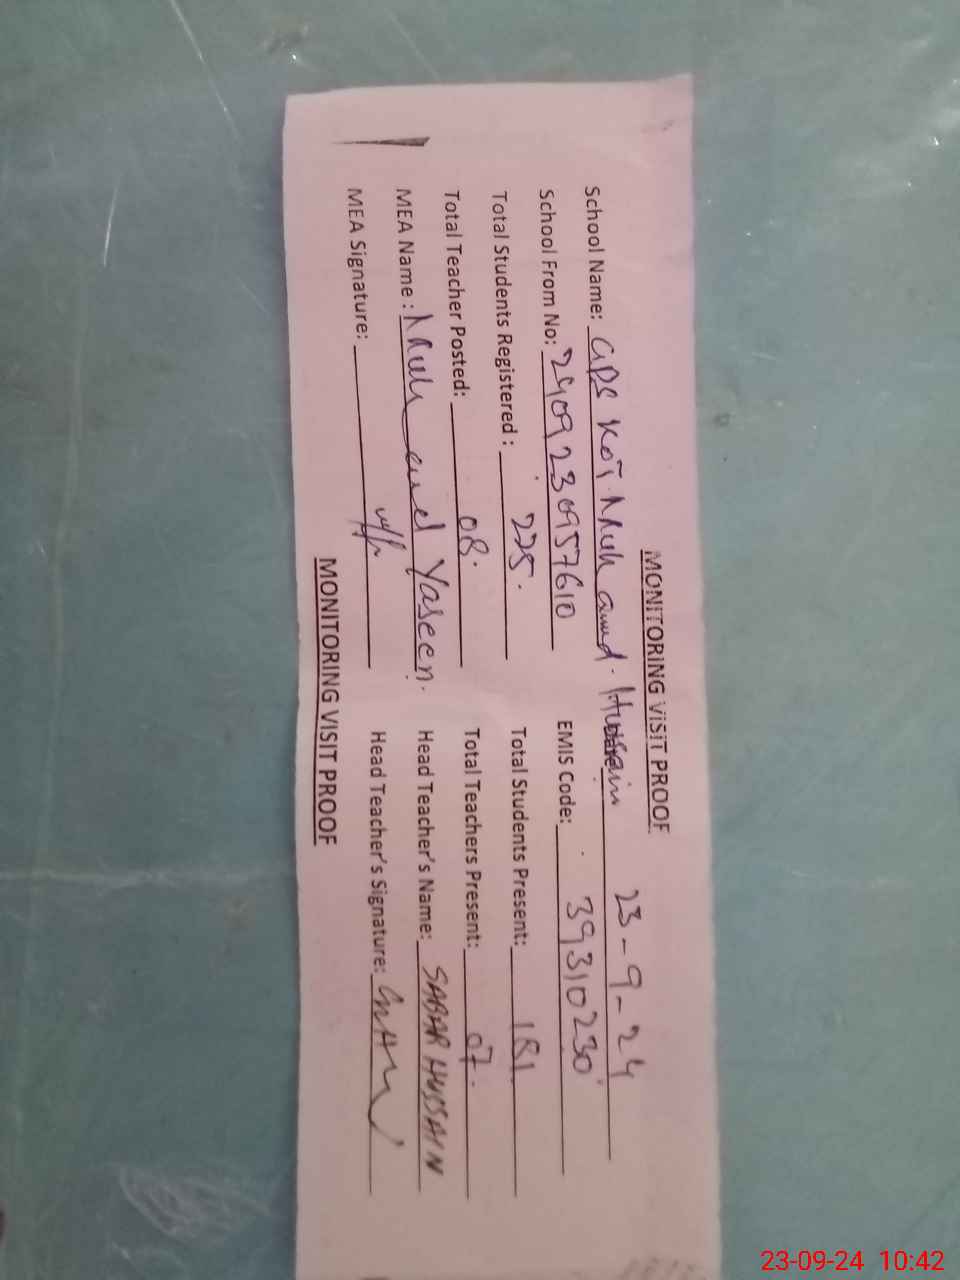 MONITORING VISIT PROOF
School Name: GPS Kot Muhammad Hussain Date: 23-9-24
School From No: 2909230957610 EMIS Code: 39310230
Total Students Registered : 225. Total Students Present: 181
Total Teacher Posted: 08. Total Teachers Present: 07.
MEA Name : Muhammad Yaseen. Head Teacher's Name: SABAR HUSSAIN
MEA Signature: Head Teacher's Signature:
MONITORING VISIT PROOF
23-09-24 10:42